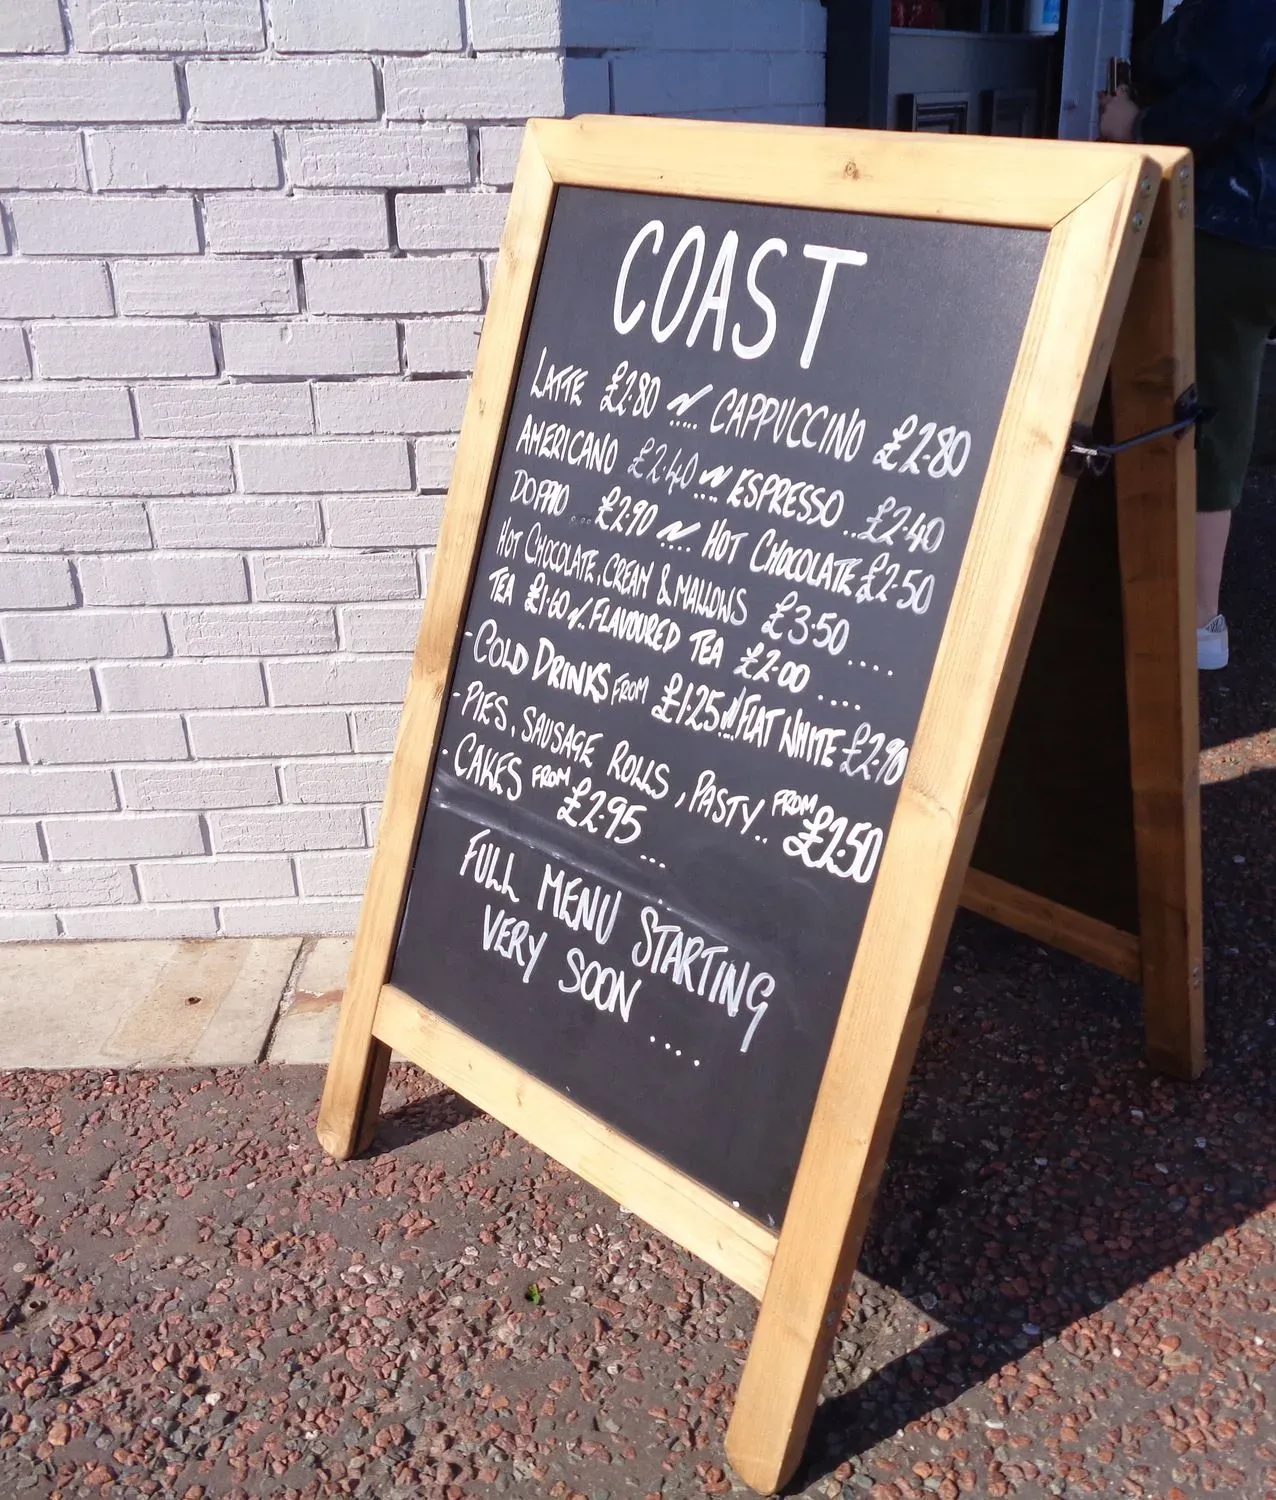 COAST
LATTE £2.80 ~ CAPPUCCINO £2.80
AMERICANO £2.40 ~ ESPRESSO .. £2.40
DOPPIO ... £2.90 ~ HOT CHOCOLATE £2.50
HOT CHOCOLATE, CREAM & MALLOWS £3.50 ....
TEA £1.60 ~ FLAVOURED TEA £2.00 ....
- COLD DRINKS FROM £1.25 ~ FLAT WHITE £2.90
- PIES, SAUSAGE ROLLS, PASTY .. FROM £2.50
- CAKES FROM £2.95 ...
FULL MENU STARTING
VERY SOON ....